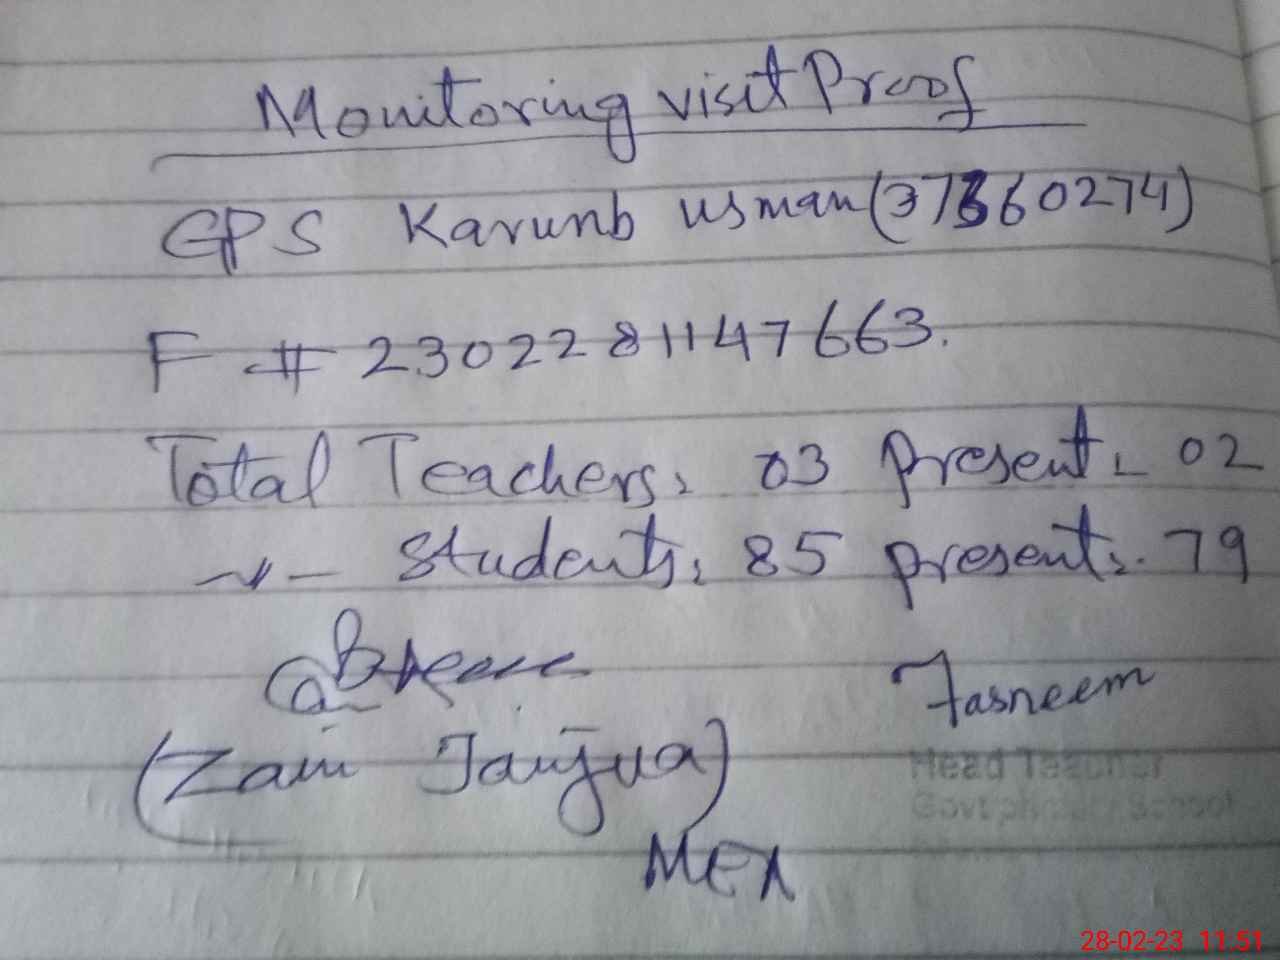 Monitoring visit Proof
GPS Karunb usman (37360274)
F # 2302281147663.
Total Teachers: 03 Present: 02
-〃- Students: 85 present: 79
Tasneem
(Zain Janjua)
Head Teacher
Govt primary School
MEA
28-02-23 11:51